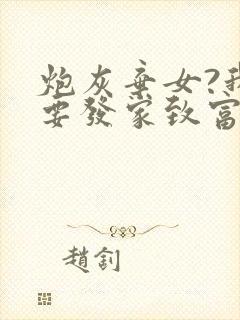 炮灰棄女?我
要發家致富
趙釗